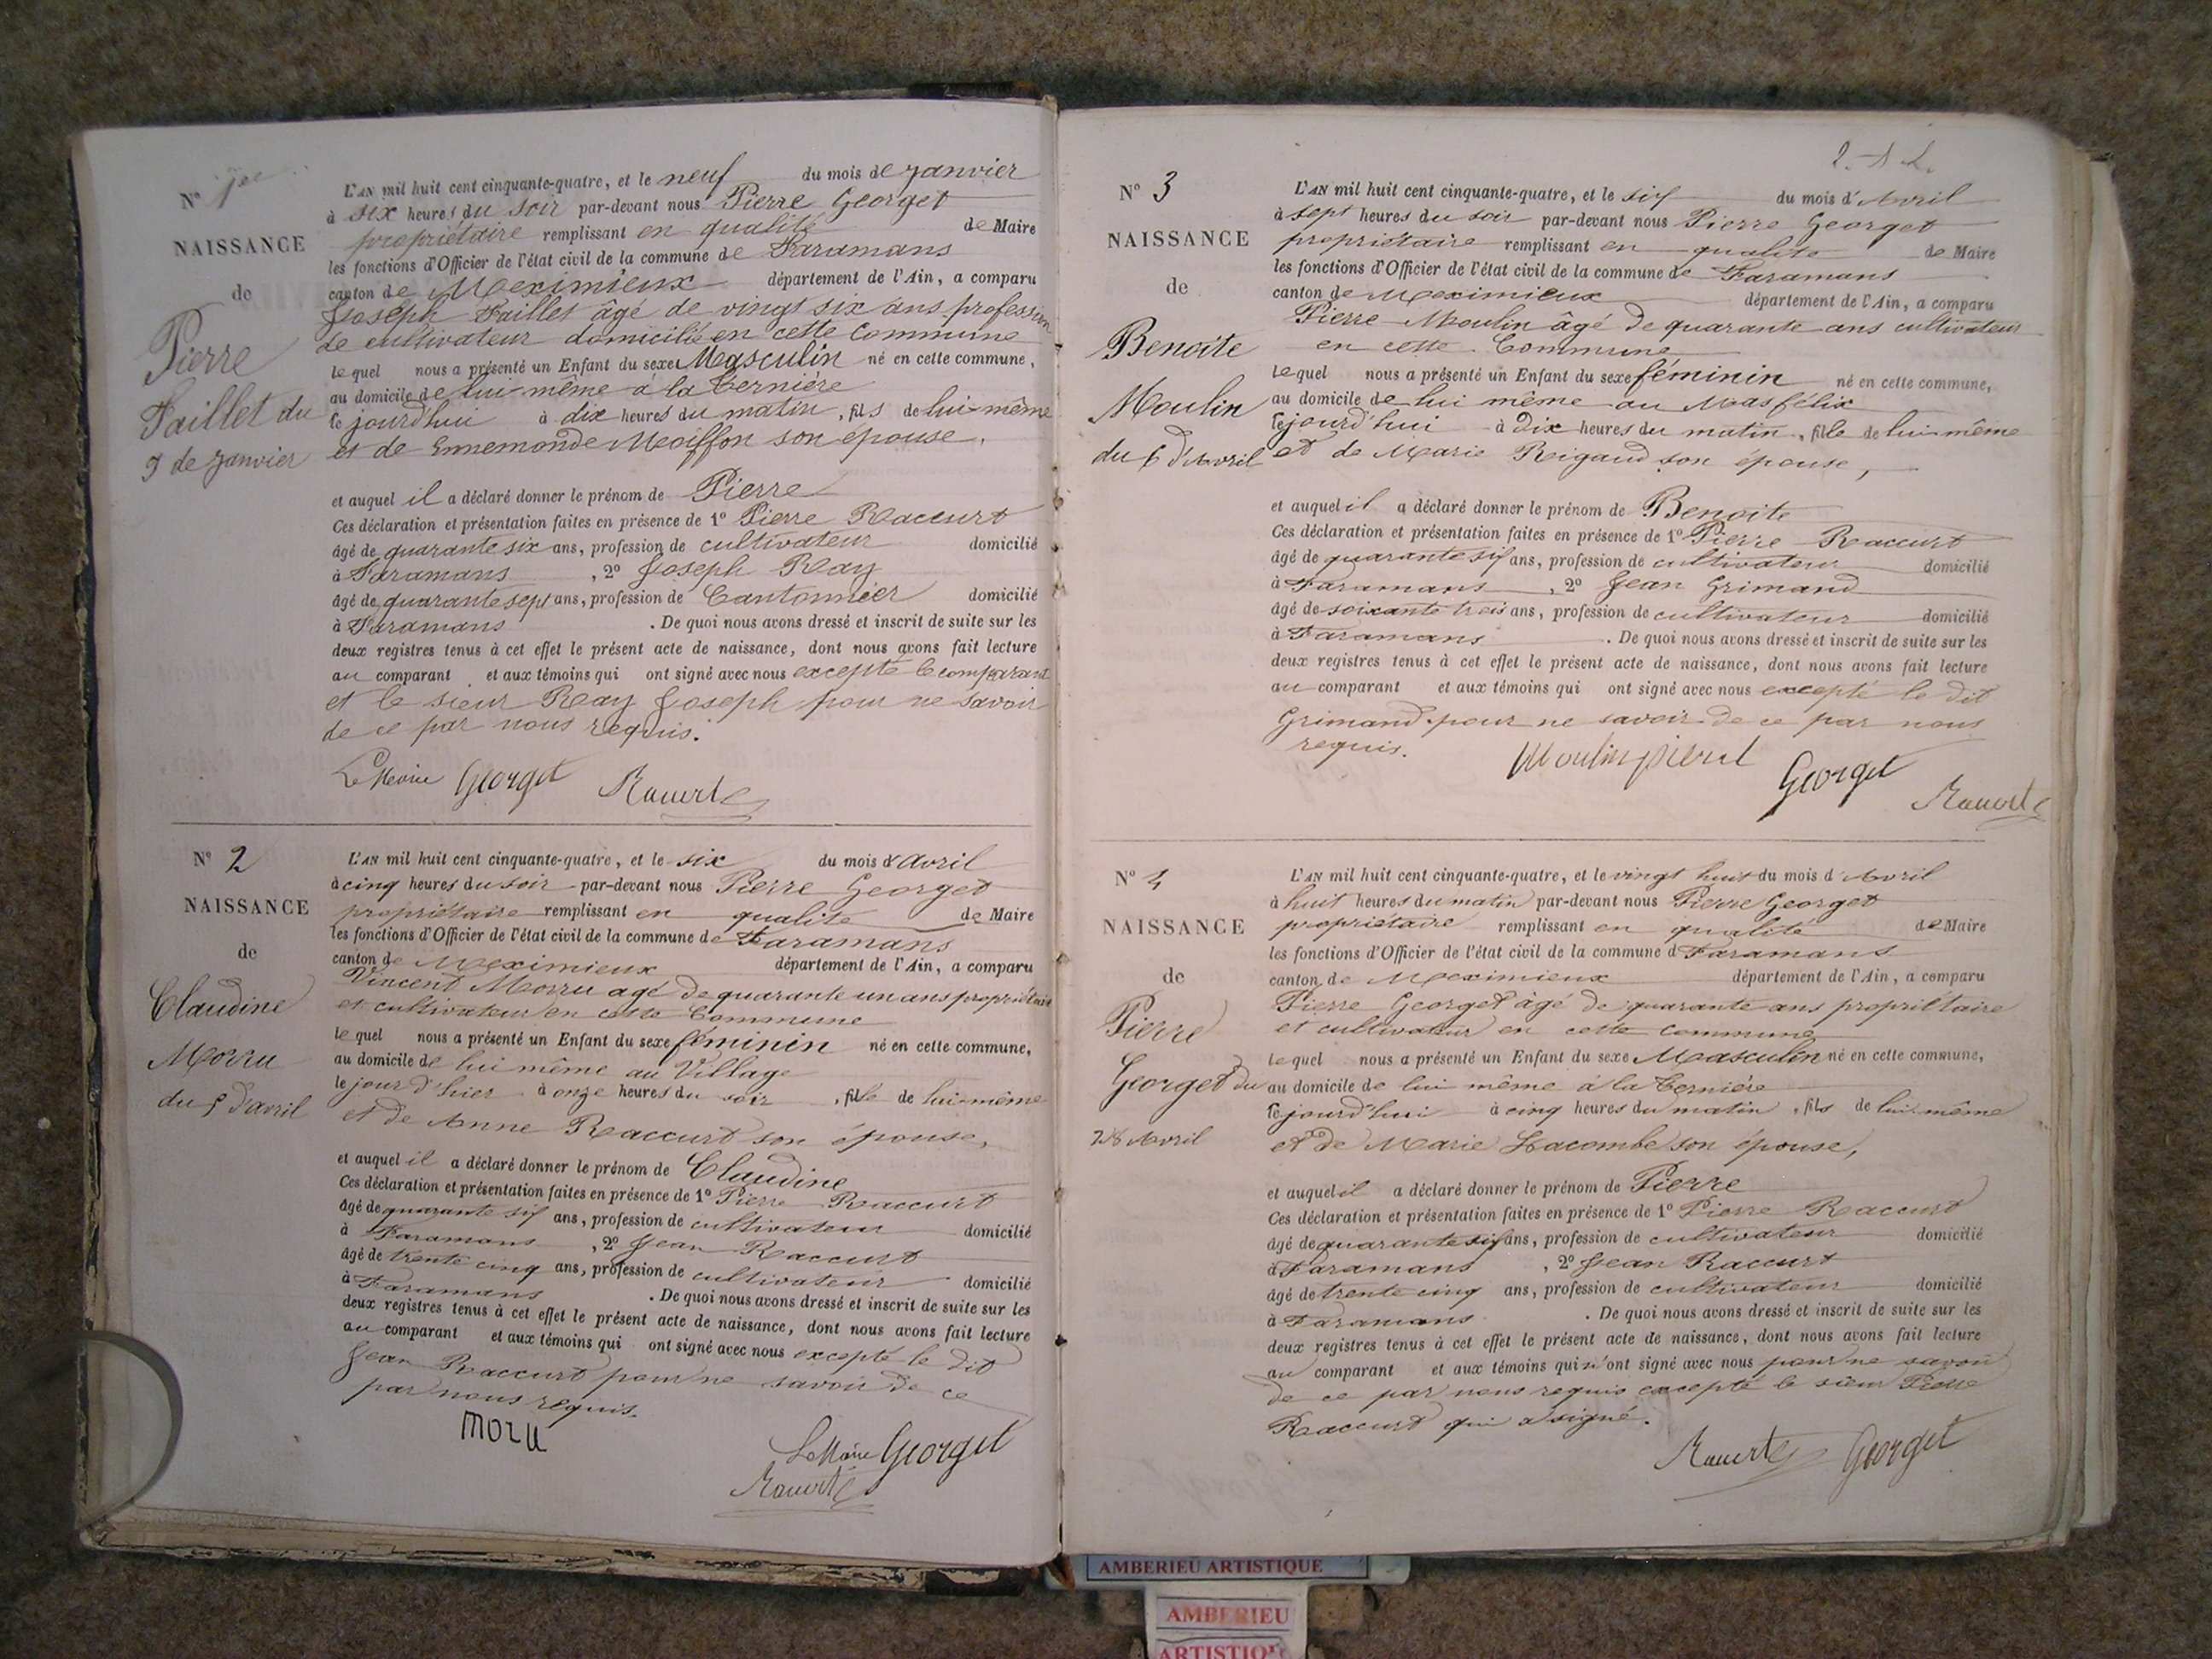 N° 1er
NAISSANCE
de
Pierre
Faillet du
9 de Janvier
L'AN mil huit cent cinquante-quatre, et le neuf du mois de Janvier
à six heures du soir par-devant nous Pierre Georget
propriétaire remplissant en qualité de Maire
les fonctions d'Officier de l'état civil de la commune de Faramans
canton de Meximieux département de l'Ain, a comparu
Joseph Faillet âgé de vingt six ans profession
de cultivateur domicilié en cette Commune
lequel nous a présenté un Enfant du sexe Masculin né en cette commune,
au domicile de lui même à la Bernière
le jourd'hui à dix heures du matin, fils de lui-même
et de Ennemonde Moiffon son épouse,
et auquel il a déclaré donner le prénom de Pierre
Ces déclaration et présentation faites en présence de 1° Pierre Raccurt
âgé de quarante six ans, profession de cultivateur domicilié
à Faramans, 2° Joseph Ray
âgé de quarante sept ans, profession de Cantonnier domicilié
à Faramans. De quoi nous avons dressé et inscrit de suite sur les
deux registres tenus à cet effet le présent acte de naissance, dont nous avons fait lecture
au comparant et aux témoins qui ont signé avec nous excepté le comparant
et le sieur Ray Joseph pour ne savoir
de ce par nous requis.
Le Maire Georget Raccurt
N° 2
NAISSANCE
de
Claudine
Morru
du 5 d'avril
L'AN mil huit cent cinquante-quatre, et le six du mois d'Avril
à cinq heures du soir par-devant nous Pierre Georget
propriétaire remplissant en qualité de Maire
les fonctions d'Officier de l'état civil de la commune de Faramans
canton de Meximieux département de l'Ain, a comparu
Vincent Morru agé de quarante un ans propriétaire
et cultivateur en cette Commune
lequel nous a présenté un Enfant du sexe féminin né en cette commune,
au domicile de lui même au Village
le jour d'hier à onze heures du soir, fille de lui-même
et de Anne Raccurt son épouse,
et auquel il a déclaré donner le prénom de Claudine
Ces déclaration et présentation faites en présence de 1° Pierre Raccurt
âgé de quarante six ans, profession de cultivateur domicilié
à Faramans, 2° Jean Raccurt
âgé de trente cinq ans, profession de cultivateur domicilié
à Faramans. De quoi nous avons dressé et inscrit de suite sur les
deux registres tenus à cet effet le présent acte de naissance, dont nous avons fait lecture
au comparant et aux témoins qui ont signé avec nous excepté le dit
Jean Raccurt pour ne savoir de ce
par nous requis.
Moru
Le Maire Georget
Raccurt
N° 3
NAISSANCE
de
Benoite
Moulin
du 6 d'Avril
L'AN mil huit cent cinquante-quatre, et le six du mois d'Avril
à sept heures du soir par-devant nous Pierre Georget
propriétaire remplissant en qualité de Maire
les fonctions d'Officier de l'état civil de la commune de Faramans
canton de Meximieux département de l'Ain, a comparu
Pierre Moulin âgé de quarante ans cultivateur
en cette Commune
lequel nous a présenté un Enfant du sexe féminin né en cette commune,
au domicile de lui même au Mas félix
le jourd'hui à Dix heures du matin, fille de lui-même
et de Marie Rigaud son épouse,
et auquel il a déclaré donner le prénom de Benoite
Ces déclaration et présentation faites en présence de 1° Pierre Raccurt
âgé de quarante six ans, profession de cultivateur domicilié
à Faramans, 2° Jean Grimand
âgé de soixante trois ans, profession de cultivateur domicilié
à Faramans. De quoi nous avons dressé et inscrit de suite sur les
deux registres tenus à cet effet le présent acte de naissance, dont nous avons fait lecture
au comparant et aux témoins qui ont signé avec nous excepté le dit
Grimand pour ne savoir de ce par nous
requis.
Moulin pierre
Georget
Raccurt
N° 4
NAISSANCE
de
Pierre
Georget du
28 Avril
L'AN mil huit cent cinquante-quatre, et le vingt huit du mois d'Avril
à huit heures du matin par-devant nous Pierre Georget
propriétaire remplissant en qualité de Maire
les fonctions d'Officier de l'état civil de la commune d Faramans
canton de Meximieux département de l'Ain, a comparu
Pierre Georget âgé de quarante ans propriétaire
et cultivateur en cette commune
lequel nous a présenté un Enfant du sexe Masculin né en cette commune,
au domicile de lui même à la Bernière
le jourd'hui à cinq heures du matin, fils de lui-même
et de Marie Lacombe son épouse,
et auquel il a déclaré donner le prénom de Pierre
Ces déclaration et présentation faites en présence de 1° Pierre Raccurt
âgé de quarante six ans, profession de cultivateur domicilié
à Faramans, 2° Jean Raccurt
âgé de trente cinq ans, profession de cultivateur domicilié
à Faramans. De quoi nous avons dressé et inscrit de suite sur les
deux registres tenus à cet effet le présent acte de naissance, dont nous avons fait lecture
au comparant et aux témoins qui n'ont signé avec nous pour ne savoir
de ce par nous requis excepté le sieur Pierre
Raccurt qui a signé.
Raccurt Georget
AMBERIEU ARTISTIQUE
AMBERIEU
ARTISTIQUE